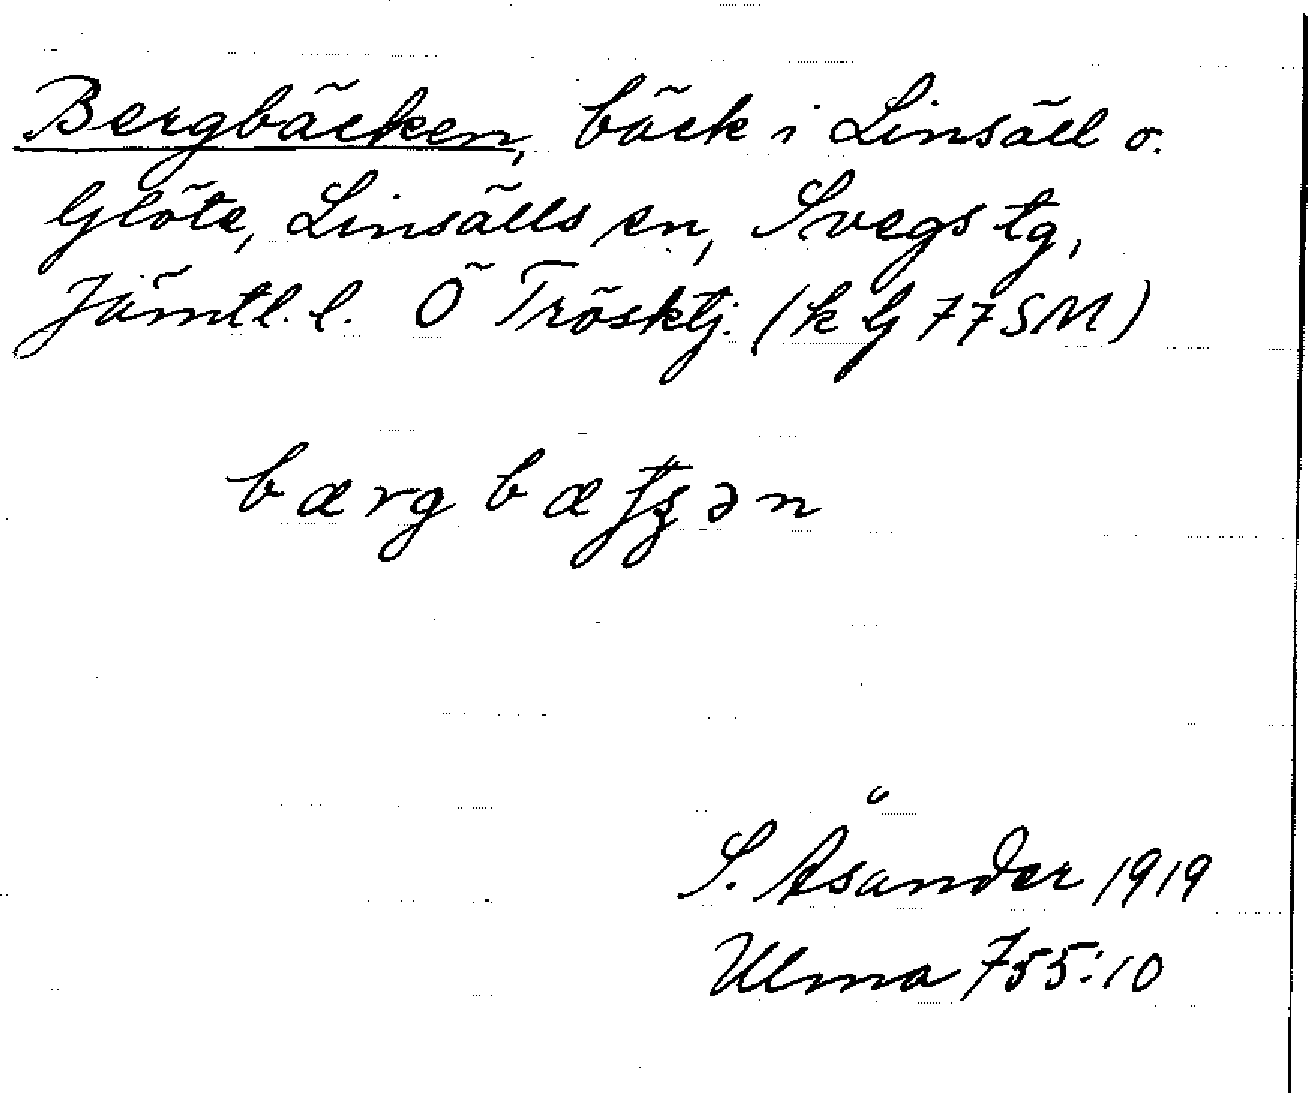 Bergbäcken, bäck i Linsäll o.
Glöte, Linsälls sn, Svegs tg,
Jämtl. l. Ö Trösktj. (k G 77 SM)
bærgbætʂən
S. Åsander 1919
Ulma 755:10